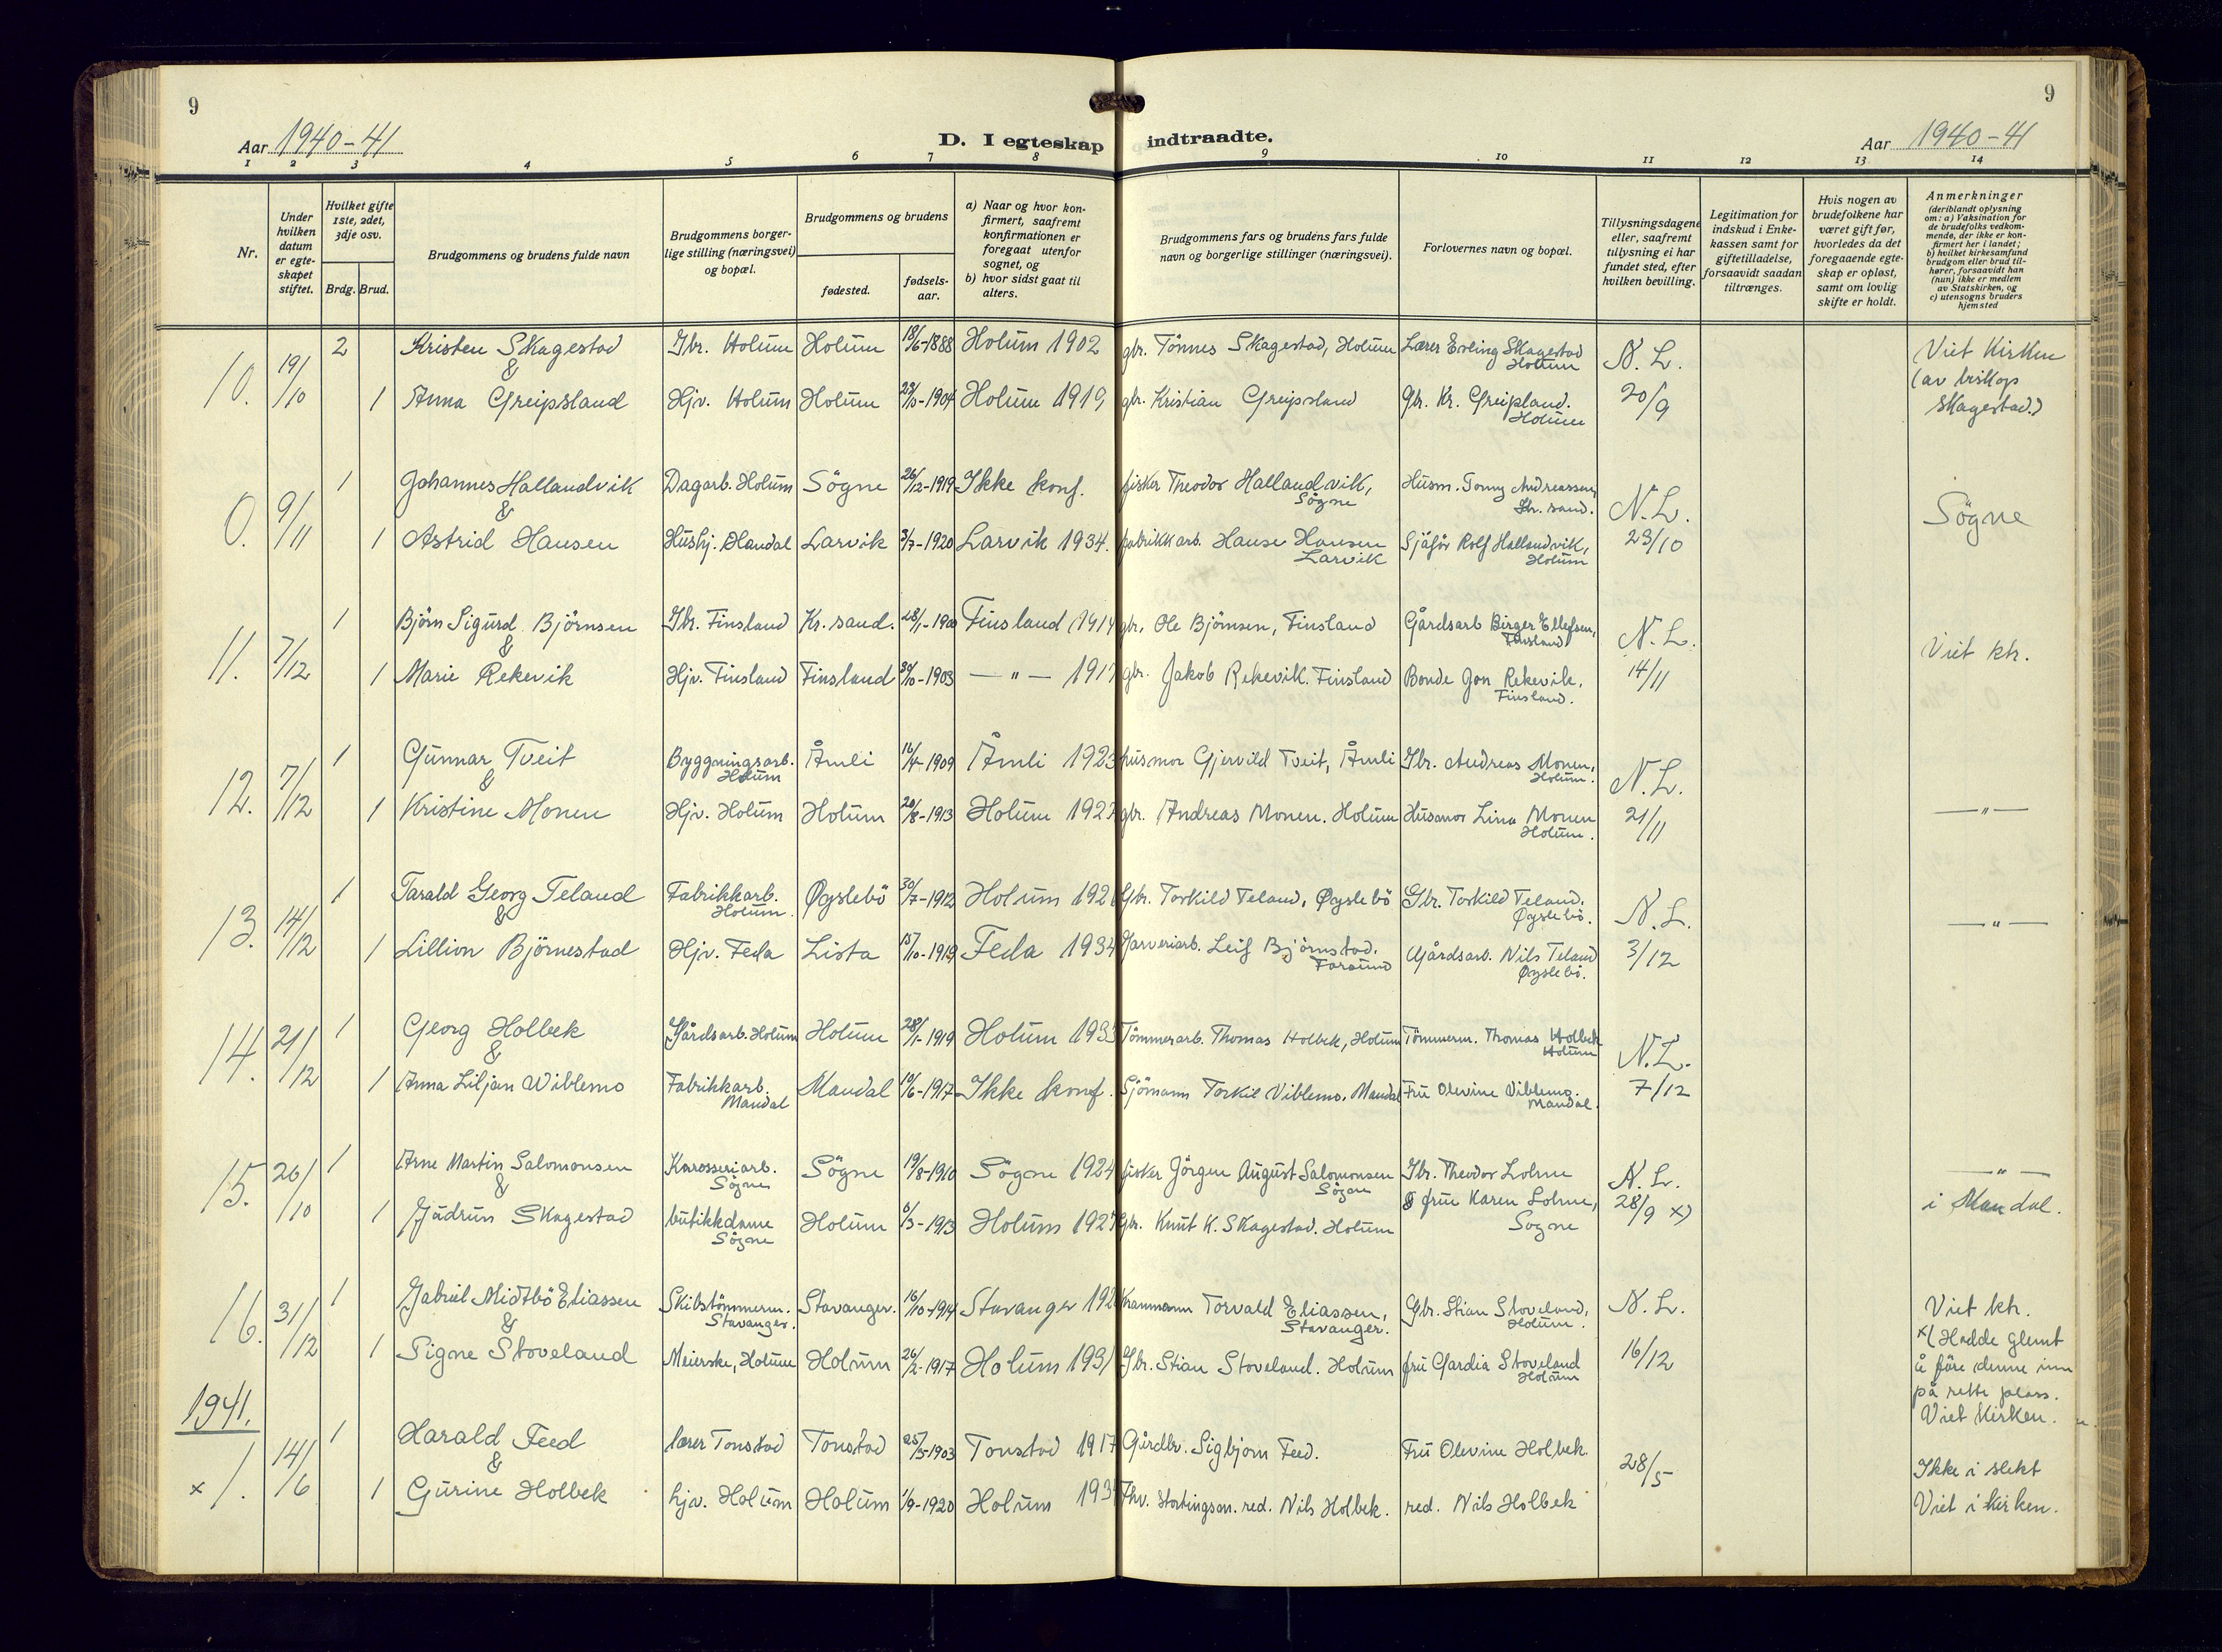 9
9
Aar 1940-41
D. I egteskap indtraadte.
Aar 1940-41
1 2 3 4 5 6 7 8 9 10 11 12 13 14
Nr.
Under hvilken datum er egteskapet stiftet.
Hvilket gifte 1ste, 2det, 3dje osv.
Brdg. Brud.
Brudgommens og brudens fulde navn
Brudgommens borgerlige stilling (næringsvei) og bopæl.
Brudgommens og brudens
fødested.
fødselsaar.
a) Naar og hvor konfirmert, saafremt konfirmationen er foregaat utenfor sognet, og
b) hvor sidst gaat til alters.
Brudgommens fars og brudens fars fulde navn og borgerlige stillinger (næringsvei).
Forlovernes navn og bopæl.
Tillysningsdagene eller, saafremt tillysning ei har fundet sted, efter hvilken bevilling.
Legitimation for indskud i Enkekassen samt for giftetilladelse, forsaavidt saadan tiltrænges.
Hvis nogen av brudefolkene har været gift før, hvorledes da det foregaaende egteskap er opløst, samt om lovlig skifte er holdt.
Anmerkninger
(deriblandt oplysning om: a) Vaksination for de brudefolks vedkommende, der ikke er konfirmert her i landet;
b) hvilket kirkesamfund brudgom eller brud tilhører, forsaavidt han (hun) ikke er medlem av Statskirken, og
c) utensogns bruders hjemsted
10. 19/10 2 Kristen Skagestad Gbr. Holum Holum 18/6-1888 Holum 1902 gbr. Tönnes Skagestad, Holum Lærer Erling Skagestad Holum N. L. Viet Kirken
&
1 Anna Greipsland Hjv. Holum Holum 1904 Holum 1919 gbr. Kristian Greipsland Gbr. Kr. Greipland. Holum 20/9 (av biskop Skagestad.)
0. 9/11 1 Johannes Hallandvik Dagarb. Holum Sögne 26/12-1919 Ikke konf. fisker Theodor Hallandvik, Sögne Husm. Tomy Andreassen, Kr. sand. N. L. Sögne
&
1 Astrid Hansen Hushj. Mandal Larvik 3/7-1920 Larvik 1934. fabrikkarb. Hansen Larvik Sjåför Rolf Hallandvik, Holum 23/10
11. 7/12 1 Björn Sigurd Björnsen Gbr. Finsland Kr. sand. 28/1-1900 Finsland 1914 gbr. Ole Björnsen, Finsland Gårdsarb Birger Ellefsen, Finsland N. L. Viet ktr.
&
1 Marie Rekevik Hjv. Finsland Finsland 30/10-1903 — " — 191 gbr. Jakob Rekevik. Finsland Bonde Jon Rekevik, Finsland. 14/11
12. 7/12 1 Gunnar Tveit Byggningsarb. Holum Åmli 16/4-1909 Åmli 1923 husmor Gjervild Tveit, Åmli Gbr. Andreas Monen, Holum. N. L. — " —
&
1 Kristine Monen Hjv. Holum Holum 20/8-1913 Holum 192 gbr. Andreas Monen. Holum Husmor Lina Monen Holum. 21/11
13. 14/12 1 Tarald Georg Teland Fabrikkarb. Holum. Øyslebö 30/7-1912 Holum 192 Gbr. Torkild Teland, Øyslebö Gbr. Torkild Teland. Øyslebö. N. L. — " —
&
1 Lillion Björnestad Hjv. Feda Lista 15/10-1919 Feda 1934 Garveriarb. Leif Björnstad. Farsund Gårdsarb. Nils Teland Øyslebö. 3/12
14. 21/12 1 Georg Holbek Gårdsarb. Holum Holum 28/1-1919 Holum 193 Tömmerarb. Thomas Holbek, Holum Tömmerm. Thomas Holbek Holum N. L.
&
1 Anna Liljan Viblemo Fabrikkarb. Mandal Mandal 10/6-1917 Ikke konf. Sjömann Torkil Viblemo. Mandal Fru Olevine Viblemo. Mandal. 7/12
15. 26/10 1 Arne Martin Salomonsen Karosseriarb. Sögne Sögne 19/8-1910 Sögne 1924 fisker Jörgen August Salomonsen Sögne Gbr. Theodor Lohne N. L. — " —
&
1 Gudrun Skagestad butikkdame Sögne Holum 6/3-1913 Holum 192 Gbr. Knut K. Skagestad. Holum & frue Karen Lohne, Sogne 28/9 x) i Mandal.
16. 31/12 1 Gabriel Midtbö Eliassen Skibstömmerm. Stavanger. Stavanger. 16/10-1914 Stavanger 192 Torvald Eliassen, Stavanger. Gbr. Stian Stoveland, Holum. N. L. Viet ktr.
&
1 Signe Stoveland Meierske, Holum Holum 26/2-1917 Holum 1931 Gbr. Stian Stoveland. Holum fru Gardia Stoveland Holum 16/12 x) Hadde glemt å före denne inn på rette plass.
1941.
x 1. 14/6 1 Harald Feed lærer Tonstad Tonstad 25/5-1903 Tonstad 1917 Gårdbr. Sigbjörn Feed. Fru Olevine Holbek 28/5 Viet Kirken.
&
1 Gurine Holbek hjv. Holum Holum 1/9-1920 Holum 193 Fhv. Stortingsm. red. Nils Holbek. red. Nils Holbek Ikke i slekt
Viet i kirken.